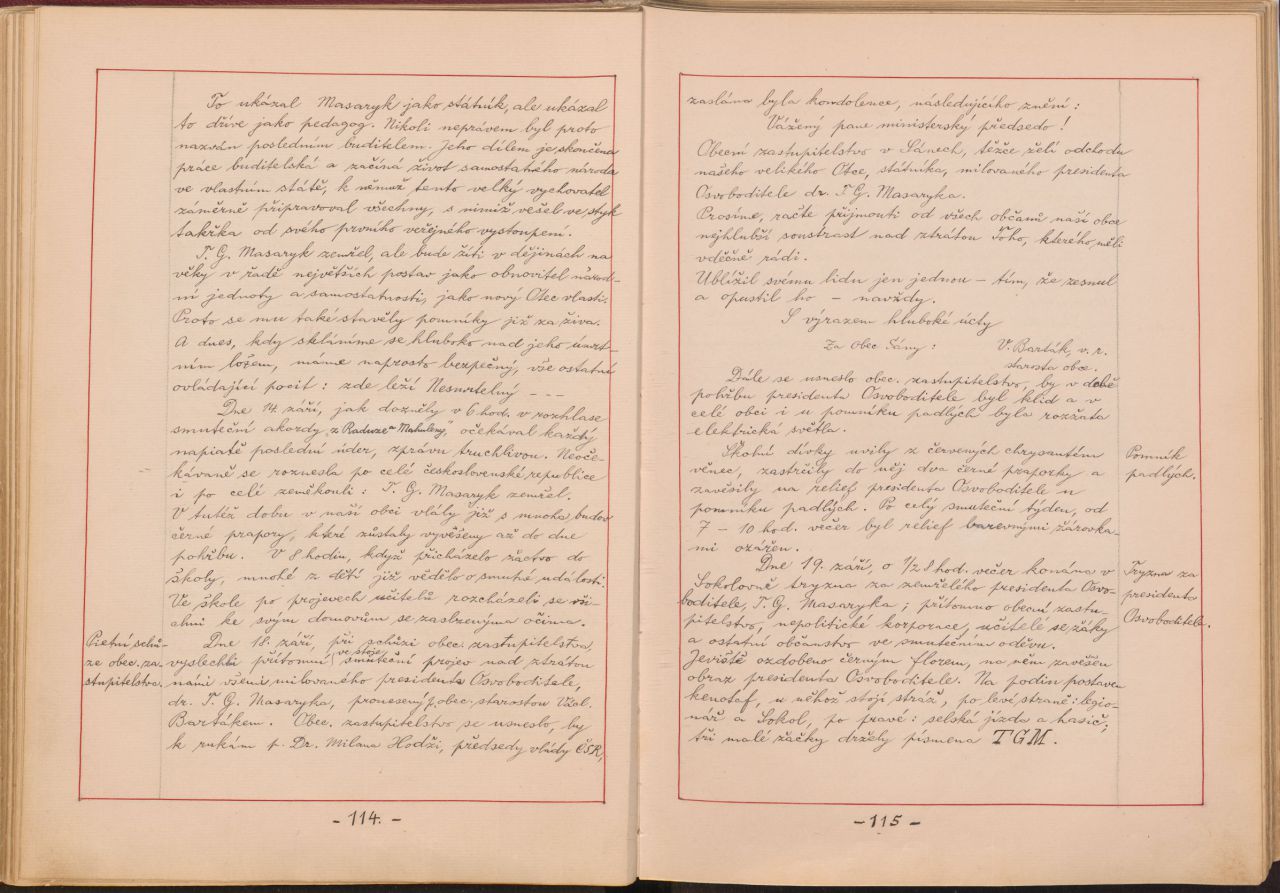 To ukázal Masaryk jako státník, ale ukázal
to dříve jako pedagog. Nikoli neprávem byl proto
nazván posledním buditelem. Jeho dílem je skončena
práce buditelská a začíná život samostatného národa
ve vlastním státě, k němuž tento velký vychovatel
záměrně připravoval všechny, s nimiž vešel ve styk
takřka od svého prvního veřejného vystoupení.
T. G. Masaryk zemřel, ale bude žíti v dějinách na
věky v řadě největších postav jako obnovitel národ-
ní jednoty a samostatnosti, jako nový Otec vlasti.
Proto se mu také stavěly pomníky již za živa.
A dnes, kdy skláníme se hluboko nad jeho úmrt-
ním ložem, máme naprosto bezpečný, vše ostatní
ovládající pocit: zde leží Nesmrtelný - - -
Dne 14. září, jak dozněly v 6 hod. v rozhlase
smuteční akordy „z Raduze a Mahuleny“ očekával každý
napiatě poslední úder, zprávu truchlivou. Neoče-
kávaně se roznesla po celé československé republice
i po celé zeměkouli: T. G. Masaryk zemřel.
V tutéž dobu v naší obci vlály již s mnoha budov
černé prapory, které zůstaly vyvěšeny až do dne
pohřbu. V 8 hodin, když přicházelo žactvo do
školy, mnohé z dětí již vědělo o smutné události.
Ve škole po projevech učitelů rozcházeli se vši-
chni ke svým domovům se zaslzenýma očima.
Pietní schů-
ze obec. za-
stupitelstva.
Dne 18. září, při schůzi obec. zastupitelstva,
vyslechli přítomní ve stoje smuteční projev nad ztrátou
námi všemi milovaného presidenta Osvoboditele,
dr. T. G. Masaryka, pronesený p. obec. starostou Václ.
Bartákem. Obec. zastupitelstvo se usneslo, by
k rukám p. Dr. Milana Hodži, předsedy vlády ČSR,
- 114. -
zaslána byla kondolence, následujícího znění:
Vážený pane ministerský předsedo!
Obecní zastupitelstvo v Sánech, těžce želí odchodu
našeho velikého Otce, státníka, milovaného presidenta
Osvoboditele dr. T. G. Masaryka.
Prosíme, račte přijmouti od všech občanů naší obce
nejhlubší soustrast nad ztrátou Toho, kterého měli
vděčně rádi.
Ublížil svému lidu jen jednou - tím, že zesnul
a opustil ho - navždy.
S výrazem hluboké úcty
Za obec Sány: V. Barták, v. r.
starosta obce.
Dále se usneslo obec. zastupitelstvo, by v době
pohřbu presidenta Osvoboditele byl klid a v
celé obci i u pomníku padlých byla rozžata
elektrická světla.
Školní dívky uvily z červených chrysantém
věnec, zastrčily do něj dva černé praporky a
zavěsily na relief presidenta Osvoboditele u
pomníku padlých. Po celý smuteční týden, od
7 - 10 hod. večer byl relief barevnými žárovka-
mi ozářen.
Pomník
padlých.
Dne 19. září, o 1/2 8 hod. večer konána v
Sokolovně tryzna za zemřelého presidenta Osvo-
boditele, T. G. Masaryka; přítomno obecní zastu-
pitelstvo, nepolitické korporace, učitelé se žáky
a ostatní občanstvo ve smutečním oděvu.
Jeviště ozdobeno černým florem, na něm zavěšen
obraz presidenta Osvoboditele. Na podiu postaven
kenotaf, u něhož stojí stráž, po levé straně: legio-
nář a Sokol, po pravé: selská jízda a hasič;
tři malé žačky držely písmena TGM.
Tryzna za
presidenta
Osvoboditele.
- 115 -